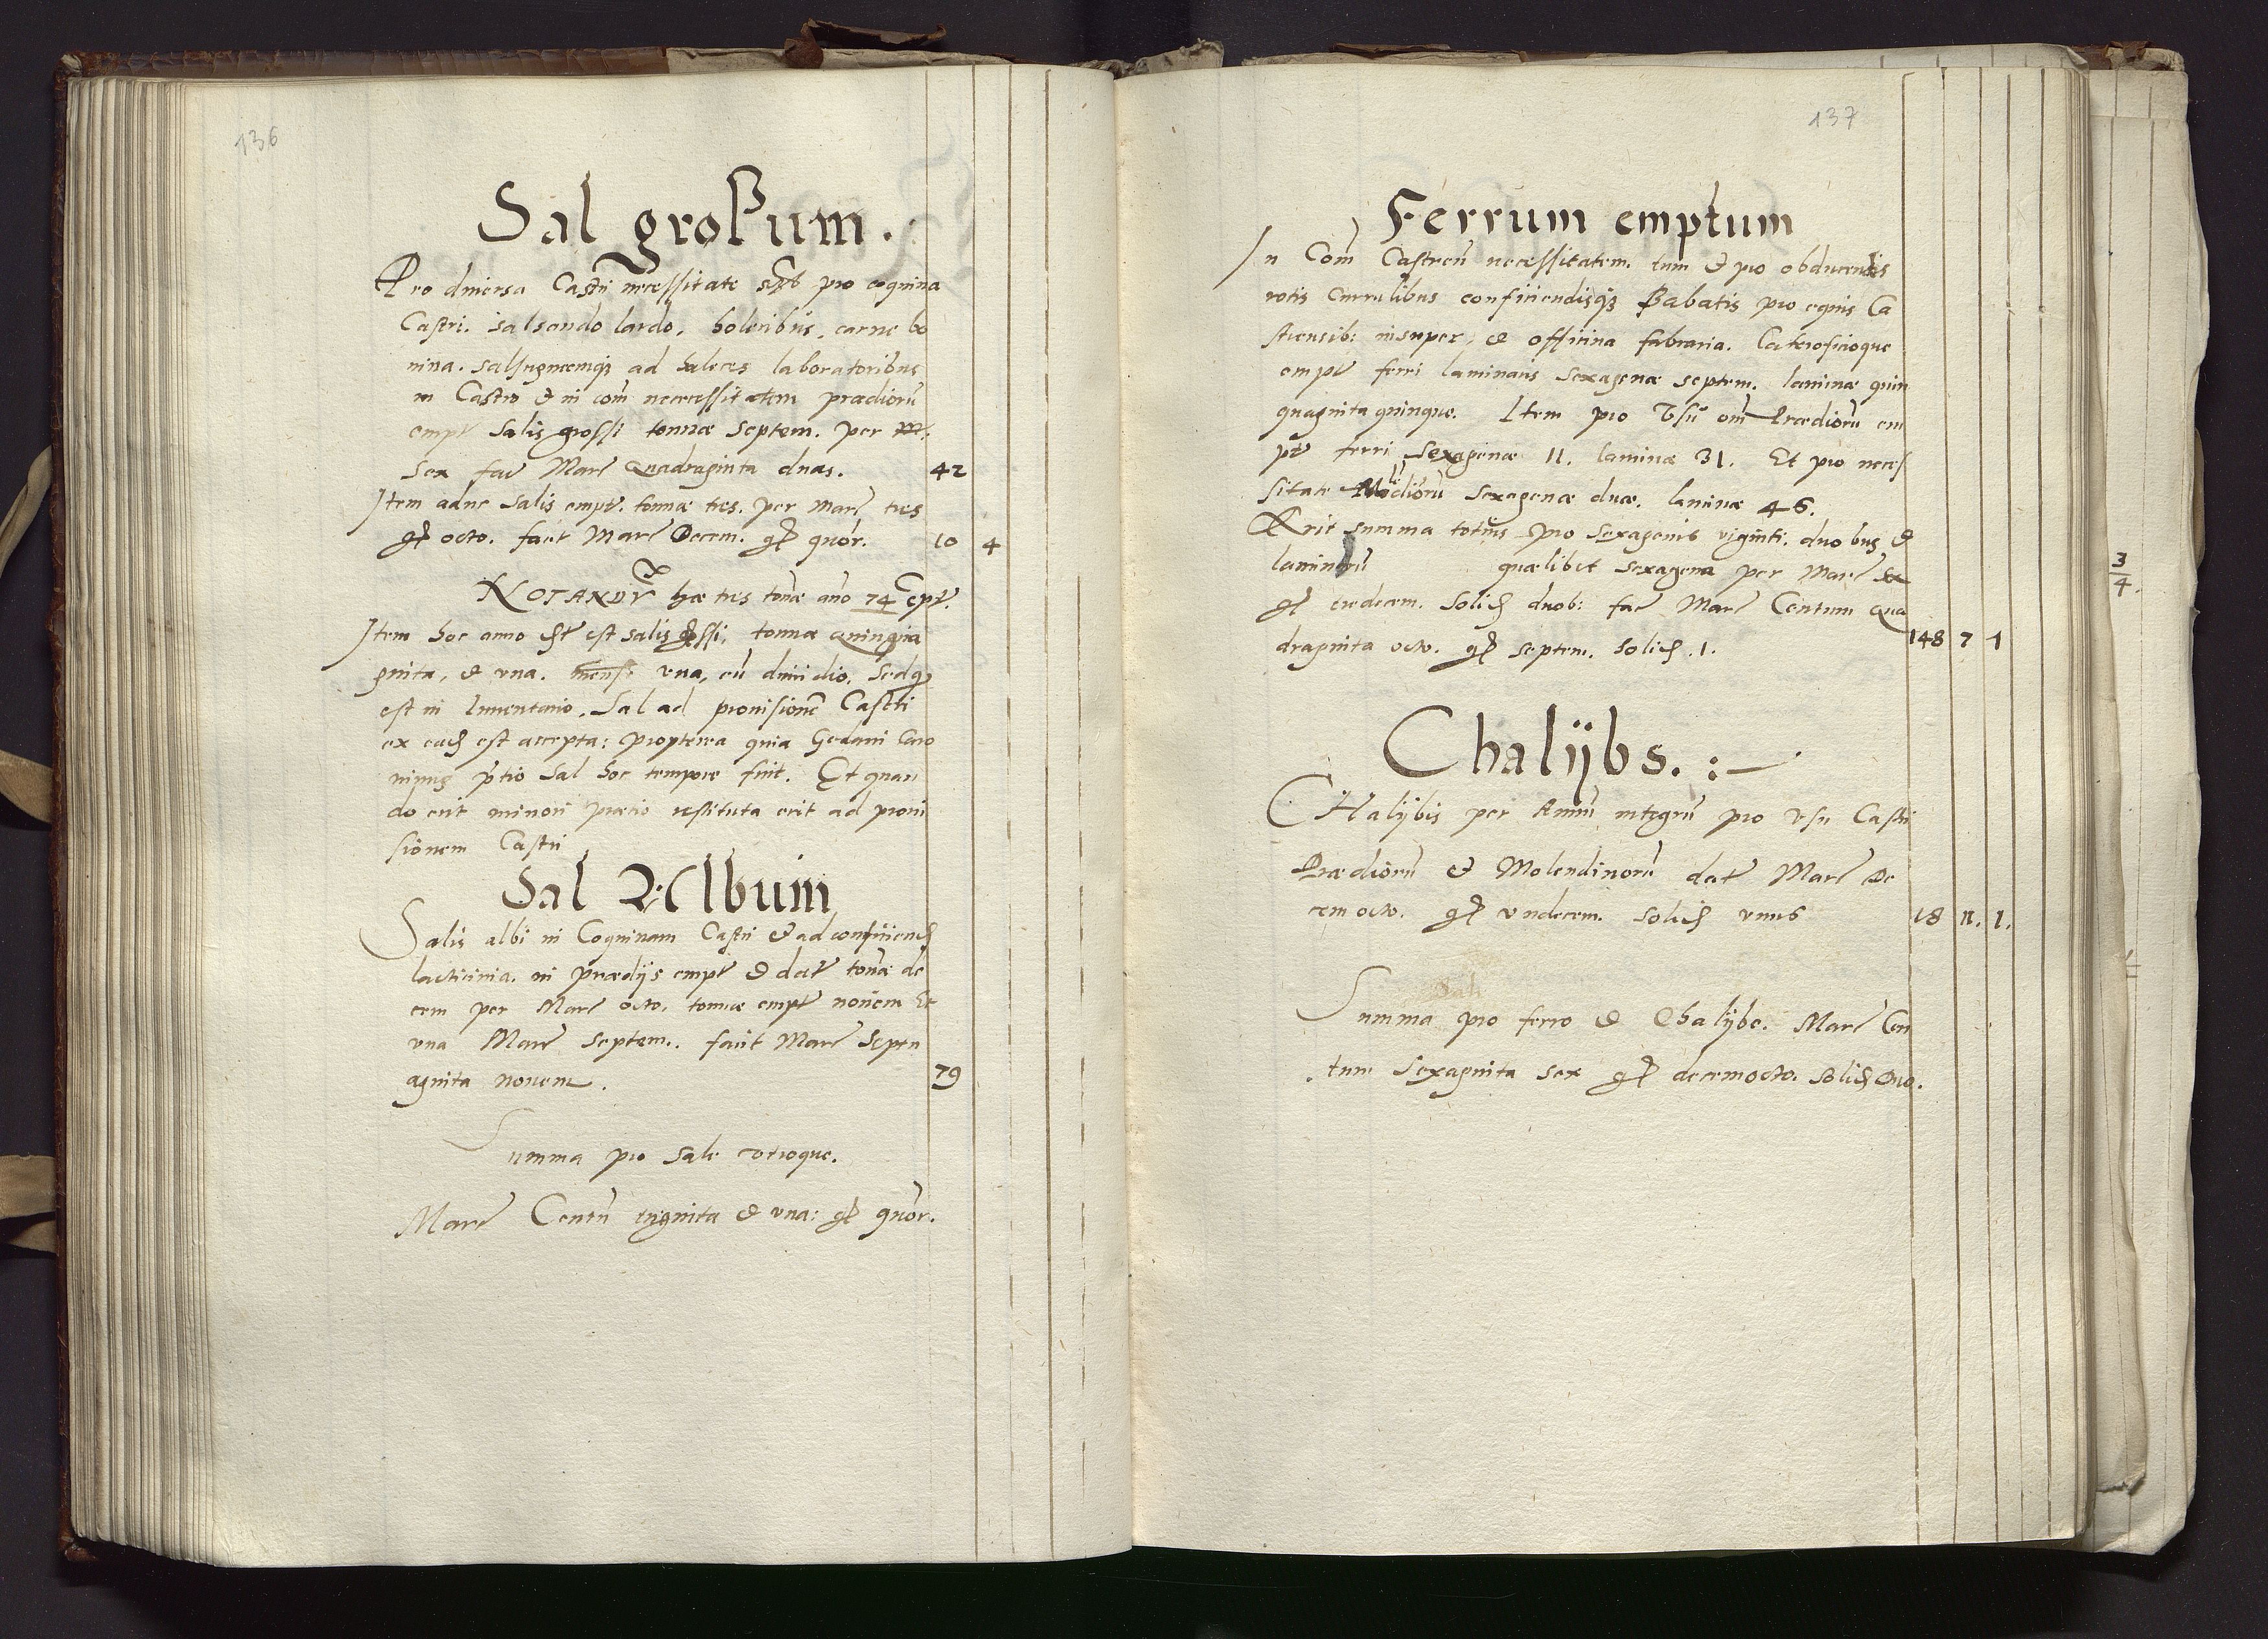 136
Sal großum.
Pro diuersa Castri necessitate pro coquina
Castri. salsando lardo. holeribus. carne bo
uina. salsugnemq3 ad haleces laboratoribus
in Castro & in com̄ necessitatem prædiorū
empt Salis grossi tonnæ Septem. per m.
Sex fac Marc Quadraginta duas. 42
Item adhuc Salis empt. tonnæ tres. per marc tres
gr octo. facit Marc Decem. gr quor. 10 4
NOTANDV hæ tres tonæ año 74 Ept.
Item hoc anno est salis tonnæ quinqua
ginta, & vna. vna, cū dimidio. Sed q
est in Inuentario. Sal ad prouisionē Castri
ex ead est accepta: propterea quia Gedani Caro
nimis ptio Sal hoc tempore fuit. Et quan
do erit minori præcio restituta erit ad proui
sionem Castri
Sal Album
Salis albi in Coquinam Castri & ad conficiend
lacticinia. in prædijs empt & dat tonæ de
cem per Marc octo. tonnæ empt nouem Et
vna Marc septem. facit Marc Septu
aginta nouem. 79
Summa pro Sale vtroque.
Marc Centū triginta & vna: gr quor.
137
Ferrum emptum
In Com̄ Castren necessitatem. tum & pro obducendis
rotis Currulibus conficiendisq3 Babatis pro equis Ca
strensib: insuper, & officina fabraria. Cateroficioque
empt ferri laminaris Sexagenæ septem. laminæ quin
quaginta quinque. Item pro Vsu om̄ Prædiorū em
pt ferri Sexagenæ 11. laminæ 31. Et pro neces
sitate sexagenæ duæ. laminæ 46.
Erit summa totius pro Sexagenis viginti. duobus &
laminarū quælibet sexagena per Marc sex
gr tredecem. Solid duob: fac Marc Centum Qua
draginta octo. gr septem. Solid .1. 148 7 1
Chalÿbs. :-
CHalÿbis per Annū integrū pro vsu Castri
Prædiorū & Molendinorū dat Marc De
cem octo. gr vndecem. Solid vnus 18 11. 1.
Summa pro ferro & Chalÿbe. Marc Cen
tum Sexaginta sex gr decemocto. Solid duo.
3
4